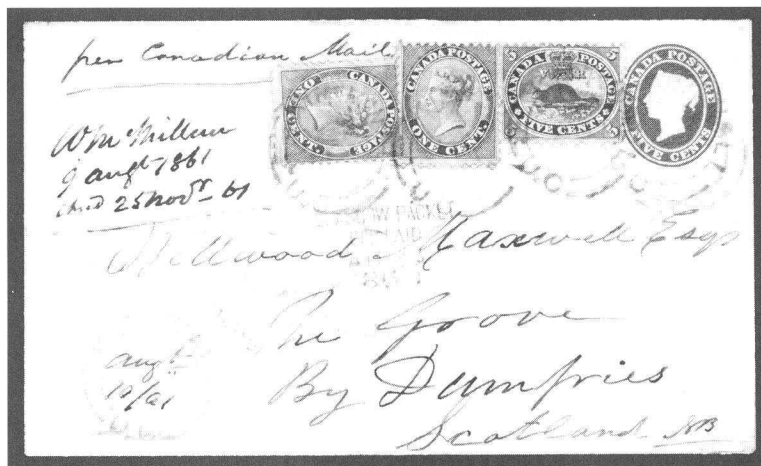 per Canadian Mail
CANADA POSTAGE
ONE CENT.
CANADA POSTAGE
ONE CENT.
5 CANADA POSTAGE 5
5 FIVE CENTS 5
CANADA POSTAGE
FIVE CENTS
Wm
9 augt 1861
25 Novr 61
PACKET
PAID
Wellwood Maxwell Esqr
The Grove
By Dumfries
Scotland NB
augt